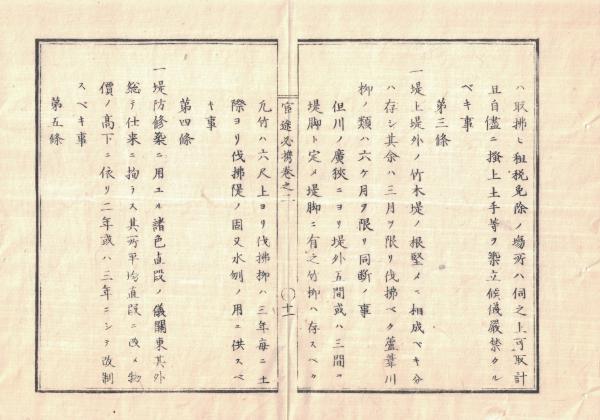 ハ取拂ヒ租税免除ノ場所ハ伺之上可取計
且自儘ニ撥上土手等ヲ築立候儀嚴禁タル
ベキ事
第三條
一堤上堤外ノ竹木堤ノ根堅メニ相成ベキ分
ハ存シ其余ハ三月ヲ限リ伐拂ベク蘆葦川
柳ノ類ハ六ケ月ヲ限リ同斷ノ事
但川ノ廣狹ニヨリ堤外五間或ハ三間ヲ
堤脚ト定メ堤脚ニ有之竹柳ハ存スベク
官途必携巻之二
十一
凡竹ハ六尺上ヨリ伐拂柳ハ三年毎ニ土
際ヨリ伐拂堤ノ固又水刎ノ用ニ供スベ
キ事
第四條
一堤防修築ニ用ユル諸色直段ノ儀關東其外
総テ仕来ニ拘ラス其所平均直段ニ改メ物
價ノ高下ニ依リ二年或ハ三年ニシテ改制
スベキ事
第五條